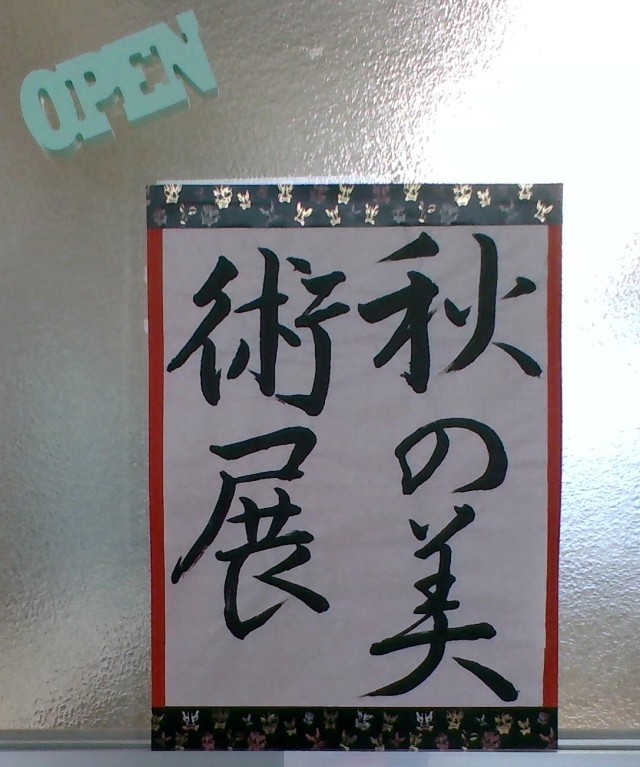 OPEN
秋の美
術展